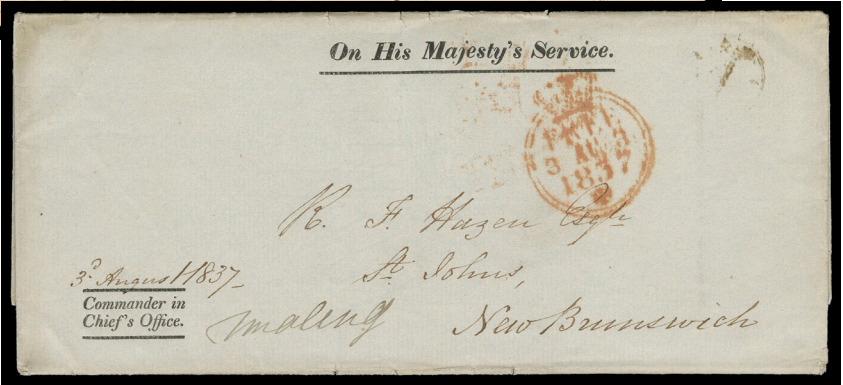 On His Majesty's Service.
3 AU 3
1837
R. F. Hazen Esqre
St. Johns,
New Brunswick
3d August 1837
Commander in
Chief's Office.